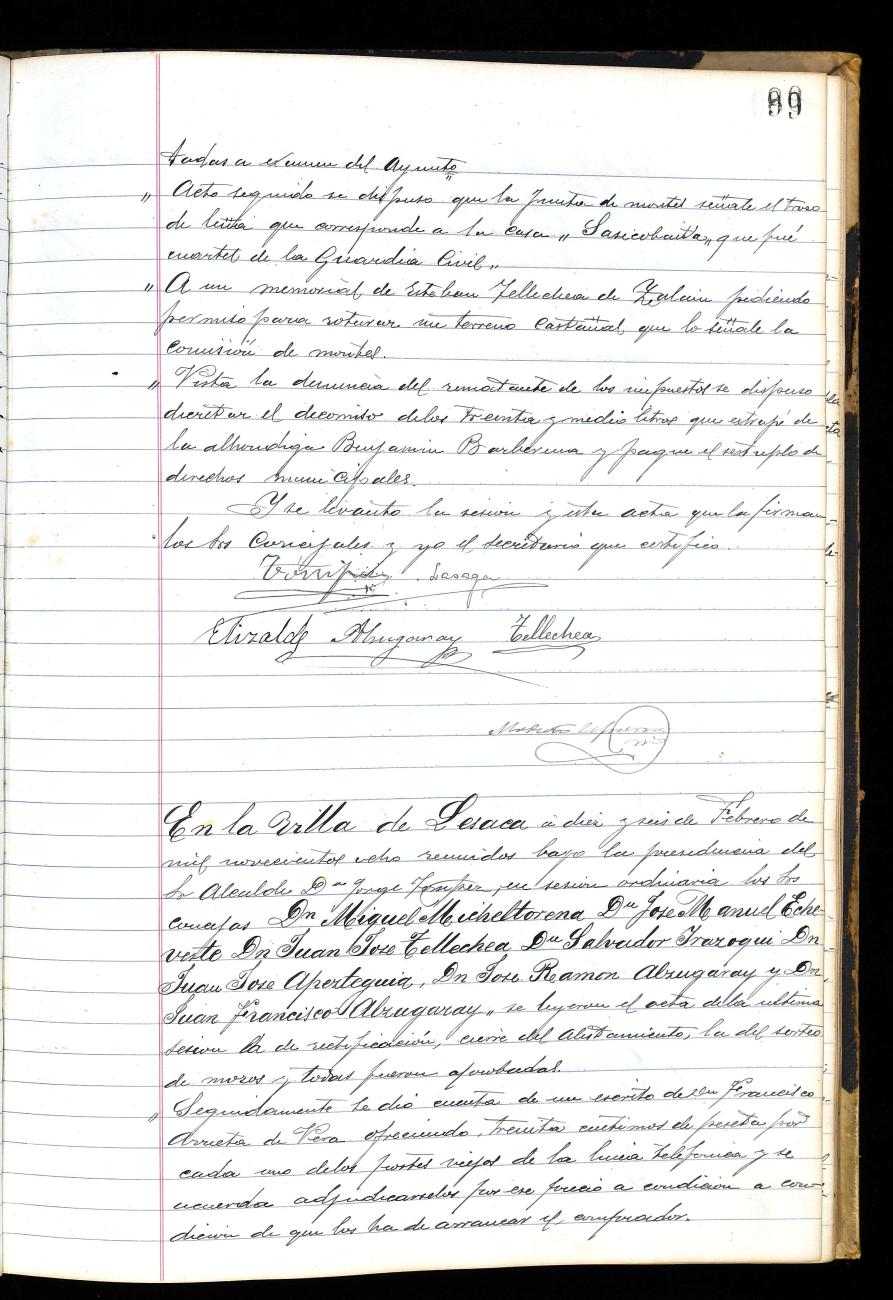 99
tadas a examen del Ayunto
„ Acto seguido se dispuso que la Junta de montes señale el trozo
de leña que corresponde a la casa „ Sasicobaita „ que fué
cuartel de la Guardia Civil „
„ A un memorial de Esteban Tellechea de Zalain pidiendo
permiso para roturar un terreno castañal que lo señale la
comisión de montes.
„ Vista la denuncia del rematante de los impuestos se dispuso
decretar el decomiso de los treinta y medio litros que extrajé de
la alhondiga Benjamin Barberena y pague el sextuplo de
derechos municipales.
Y se levanto la sesion y esta acta que la firman
los Srs Concejales y yo el secretario que certifico.
Lasaga
Elizalde Alzugaray Tellechea
Modesto
En la Villa de Lesaca a diez y seis de Febrero de
mil novecientos ocho reunidos bajo la presidencia del
Sr Alcalde Dn Jorge en sesion ordinaria los Srs
concejas Dn Miguel Micheltorena Dn Jose Manuel Eche-
veste Dn Juan Jose Tellechea Dn Salvador Irazoqui Dn
Juan Jose Aperteguia, Dn Jose Ramon Alzugaray y Dn
Juan Francisco Alzugaray „ se leyeron el acta de la ultima
sesion la de rectificación, cierre del alistamiento, la del sorteo
de mozos y todas fueron aprobadas.
„ Seguidamente se dió cuenta de un escrito de Dn Francisco
Arrieta de Vera ofreciendo, treinta centimos de peseta por
cada uno de los postes viejos de la linea telefonica y se
acuerda adjudicarselos por ese precio a condicion a con-
dicion de que los ha de arrancar el comprador.